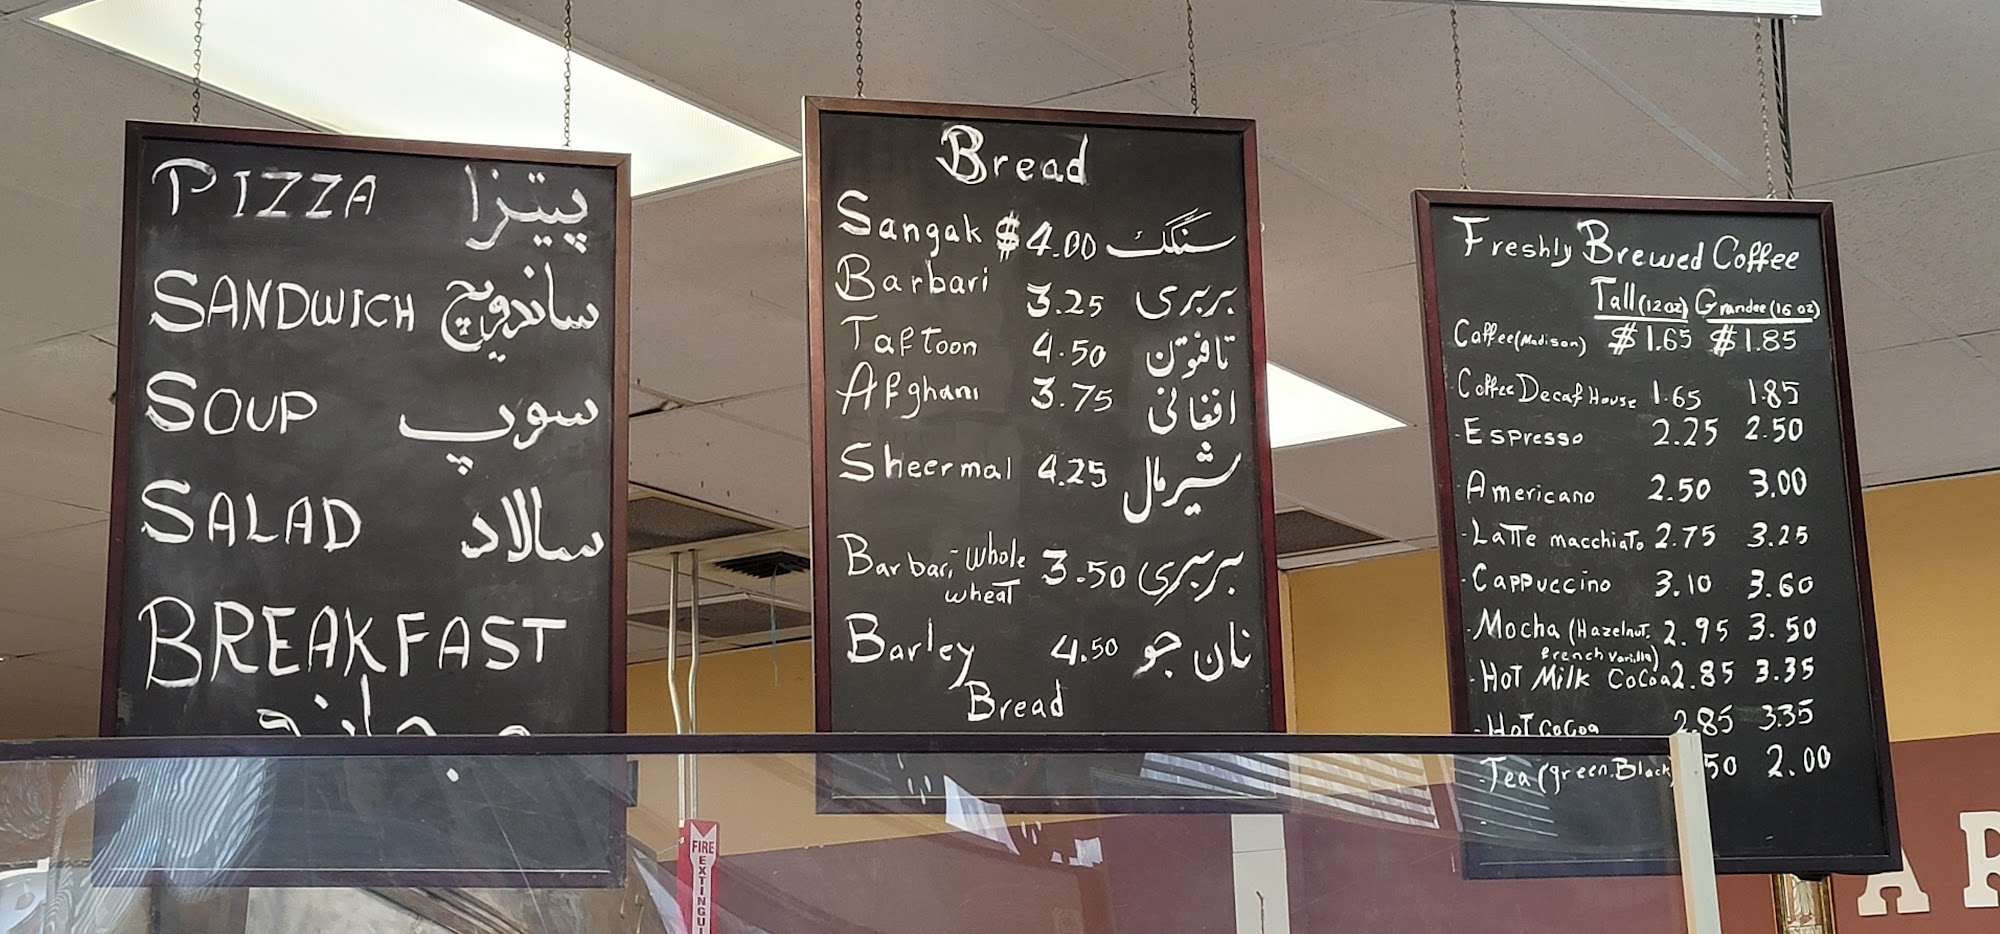 PIZZA پیتزا
SANDWICH ساندویچ
SOUP سوپ
SALAD سالاد
BREAKFAST
صبحانه
Bread
Sangak $4.00 سنگک
Barbari 3.25 بربری
Taftoon 4.50 تافتون
Afghani 3.75 افغانی
Sheermal 4.25 شیرمال
Barbari, Whole 3.50 بربری
wheat
Barley 4.50 نان جو
Bread
Freshly Brewed Coffee
Tall (12 oz) Grandee (16 oz)
Coffee (Madison) $1.65 $1.85
Coffee Decaf House 1.65 1.85
- Espresso 2.25 2.50
- Americano 2.50 3.00
- Latte macchiato 2.75 3.25
- Cappuccino 3.10 3.60
- Mocha (Hazelnut, 2.95 3.50
French Vanilla)
- Hot Milk Cocoa 2.85 3.35
- Hot Cocoa 2.85 3.35
- Tea (green, Black) 50 2.00
FIRE
EXTINGU
A